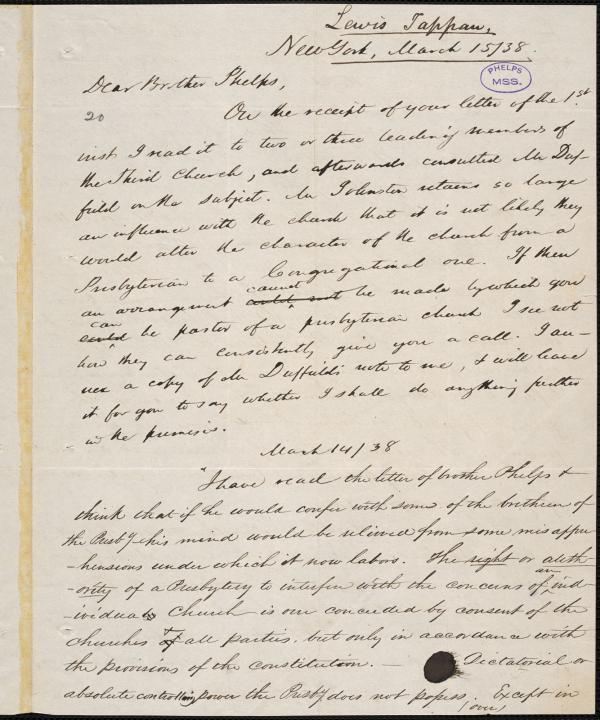 Lewis Tappan,
New York, March 15/38.
PHELPS
MSS.
Dear Brother Phelps,
20
On the receipt of your letter of the 1st
inst I read it to two or three leading members of
the third Church, and afterwards consulted Mr Duf-
field on the subject. Mr Johnston retains so large
an influence with the church that it is not likely they
would alter the character of the church from a
Presbyterian to a Congregational one. If then
an arrangement could not cannot be made by which you
could can be pastor of a presbyterian church I see not
how they can consistently give you a call. I an-
nex a copy of Mr Duffields note to me, & will leave
it for you to say whether I shall do anything further
in the premises.
March 14/38
"I have read the letter of brother Phelps &
think that if he would confer with some of the brethren of
the Presby his mind would be relieved from some misappre
-hensions under which it now labors. The right or auth-
-ority of a Presbytery to interfere with the concerns of an ind-
-ividual Church is one conceded by consent of the
churches & all parties. but only in accordance with
the provisions of the constitution. — Dictatorial or
absolute controlling power the Presby does not possess. Except in
(over)